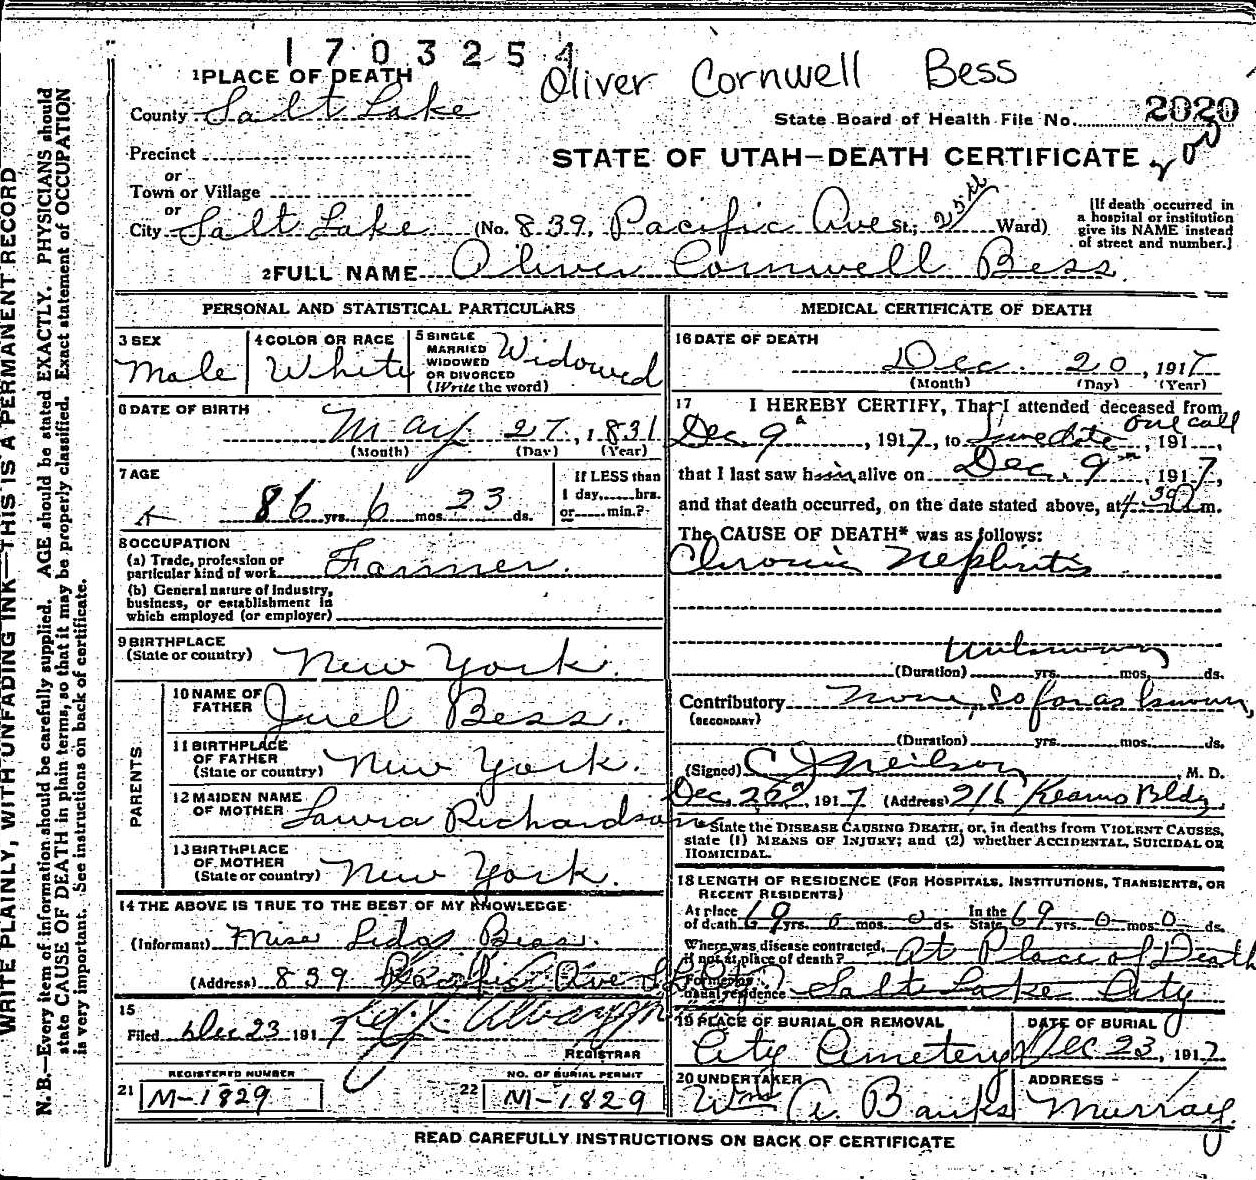 1703254
Oliver Cornwell Bess
1 PLACE OF DEATH
County Salt Lake
State Board of Health File No. 2020
Precinct
or
Town or Village
or
City Salt Lake (No. 839, Pacific Ave St.; 25th Ward)
STATE OF UTAH—DEATH CERTIFICATE
[If death occurred in a hospital or institution give its NAME instead of street and number.]
2 FULL NAME Oliver Cornwell Bess
PERSONAL AND STATISTICAL PARTICULARS
3 SEX Male
4 COLOR OR RACE White
5 SINGLE MARRIED WIDOWED OR DIVORCED (Write the word) Widowed
6 DATE OF BIRTH
May 27, 1831
(Month) (Day) (Year)
7 AGE
86 yrs. 6 mos. 23 ds.
If LESS than 1 day, hrs. or min.?
8 OCCUPATION
(a) Trade, profession or particular kind of work Farmer.
(b) General nature of Industry, business, or establishment in which employed (or employer)
9 BIRTHPLACE (State or country) New York.
PARENTS
10 NAME OF FATHER Juel Bess.
11 BIRTHPLACE OF FATHER (State or country) New York.
12 MAIDEN NAME OF MOTHER Laura Richardson
13 BIRTHPLACE OF MOTHER (State or country) New York.
14 THE ABOVE IS TRUE TO THE BEST OF MY KNOWLEDGE
(Informant) Bess.
(Address) 839 Pacific Ave
15
Filed Dec 23 191
REGISTRAR
REGISTERED NUMBER
21 M-1829
NO. OF BURIAL PERMIT
22 M-1829
MEDICAL CERTIFICATE OF DEATH
16 DATE OF DEATH
Dec. 20, 1917
(Month) (Day) (Year)
17 I HEREBY CERTIFY, That I attended deceased from
Dec. 9, 1917, to one call, 191
that I last saw him alive on Dec. 9, 1917,
and that death occurred, on the date stated above, at 4.30 m.
The CAUSE OF DEATH* was as follows:
Chronic Nephritis
unknown
(Duration) yrs. mos. ds.
Contributory none, so far as known,
(SECONDARY)
(Duration) yrs. mos. ds.
(Signed) C J Neilson, M. D.
Dec. 22, 1917 (Address) 216 Kearns Bldg.
*State the DISEASE CAUSING DEATH, or, in deaths from VIOLENT CAUSES, state (1) MEANS OF INJURY; and (2) whether ACCIDENTAL, SUICIDAL OR HOMICIDAL.
18 LENGTH OF RESIDENCE (FOR HOSPITALS, INSTITUTIONS, TRANSIENTS, OR RECENT RESIDENTS)
At place of death 69 yrs. 0 mos. 0 ds. In the State 69 yrs. 0 mos. 0 ds.
Where was disease contracted, if not at place of death? At Place of Death
Former or usual residence Salt Lake City
19 PLACE OF BURIAL OR REMOVAL City Cemetery
DATE OF BURIAL Dec 23, 1917
20 UNDERTAKER Wm A. Banks
ADDRESS Murray
READ CAREFULLY INSTRUCTIONS ON BACK OF CERTIFICATE
WRITE PLAINLY, WITH UNFADING INK—THIS IS A PERMANENT RECORD
N. B.—Every item of information should be carefully supplied. AGE should be stated EXACTLY. PHYSICIANS should
state CAUSE OF DEATH in plain terms, so that it may be properly classified. Exact statement of OCCUPATION
is very important. See instructions on back of certificate.